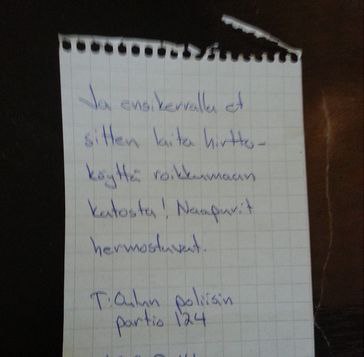 Ja ensikerralla et
sitten laita hirtto-
köyttä roikkumaan
katosta! Naapurit
hermostuvat.
T: Oulun poliisin
partio 124